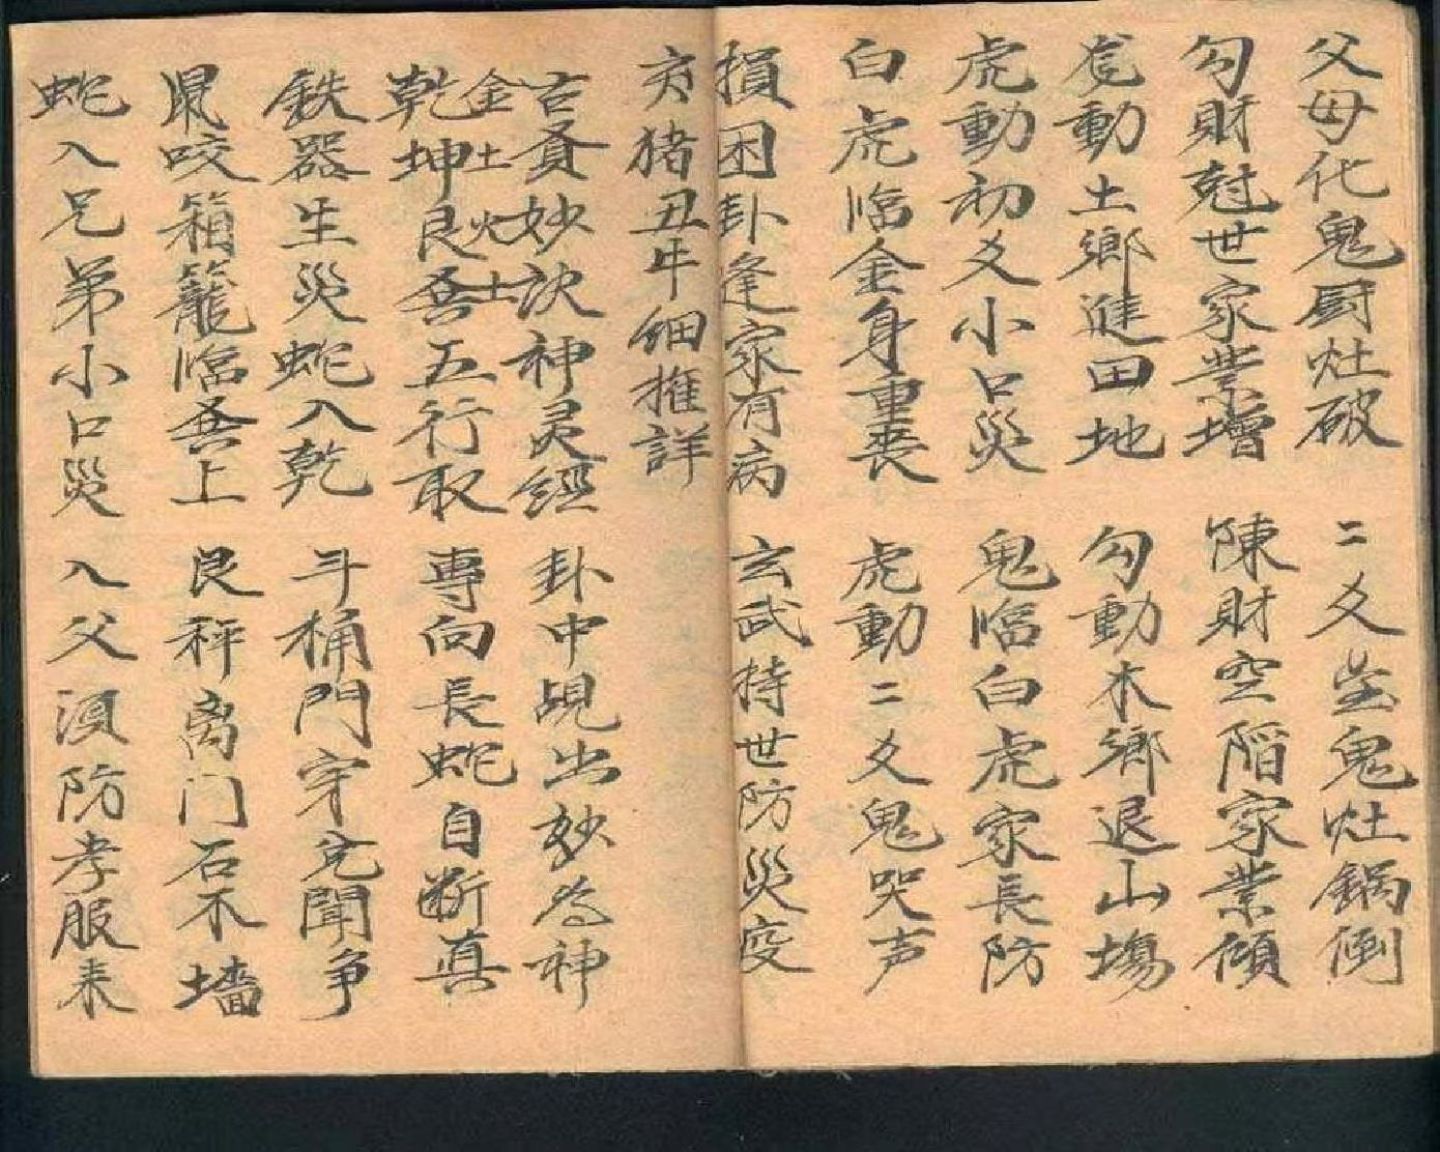 父母化鬼厨灶破 二爻坐鬼灶鍋倒
勾財尅世家業增 陳財空陷家業傾
動土鄉進田地 勾動木鄉退山場
虎動初爻小口災 鬼臨白虎家長防
白虎臨金身重喪 虎動二爻鬼哭声
損困卦逢家有病 玄武持世防災疫
亥猪丑牛细推詳
古賢妙訣神灵經 卦中覌出妙為神
金土火土
乾坤艮巽五行取 專向長蛇自断真
鉄器生災蛇入乾 斗桶門穿兌聞争
鼠咬箱籠臨巽上 艮秤离门石不墙
蛇入兄弟小口災 入父須防孝服来